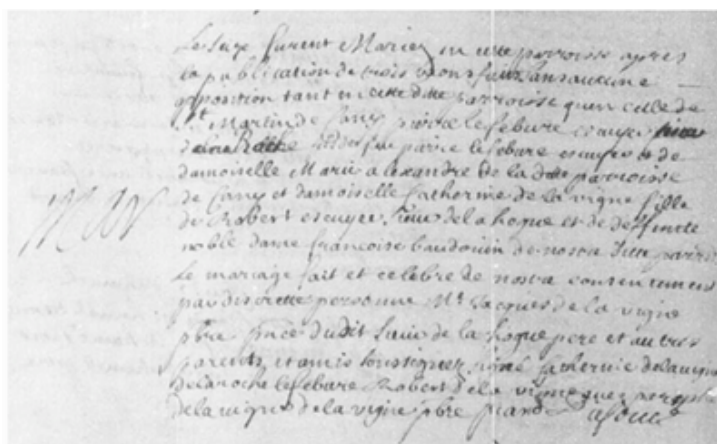 Le seize furent Mariez en cette parroisse apres
la publication de trois bans sans aucune
opposition tant en cette ditte parroisse quen celle de
St Martin de Cany pierre lefebure escuyer sieur
fils de feu pierre lefebure escuyer et de
damoiselle Marie alexandre de la ditte parroisse
de Cany et damoiselle Catherine de la vigne fille
de Robert escuyer sieur de la hogue et de deffuncte
noble dame francoise baudouin de nostre ditte parroisse
Le mariage fait et celebré de nostre consentement
par discrette personne Mr Jacques de la vigne
pbre dudit sieur de la hogue pere et autres
parents et amis soussignez signé Catherine de la vigne
lefebure Robert de la vigne
de la vigne de la vigne pbre